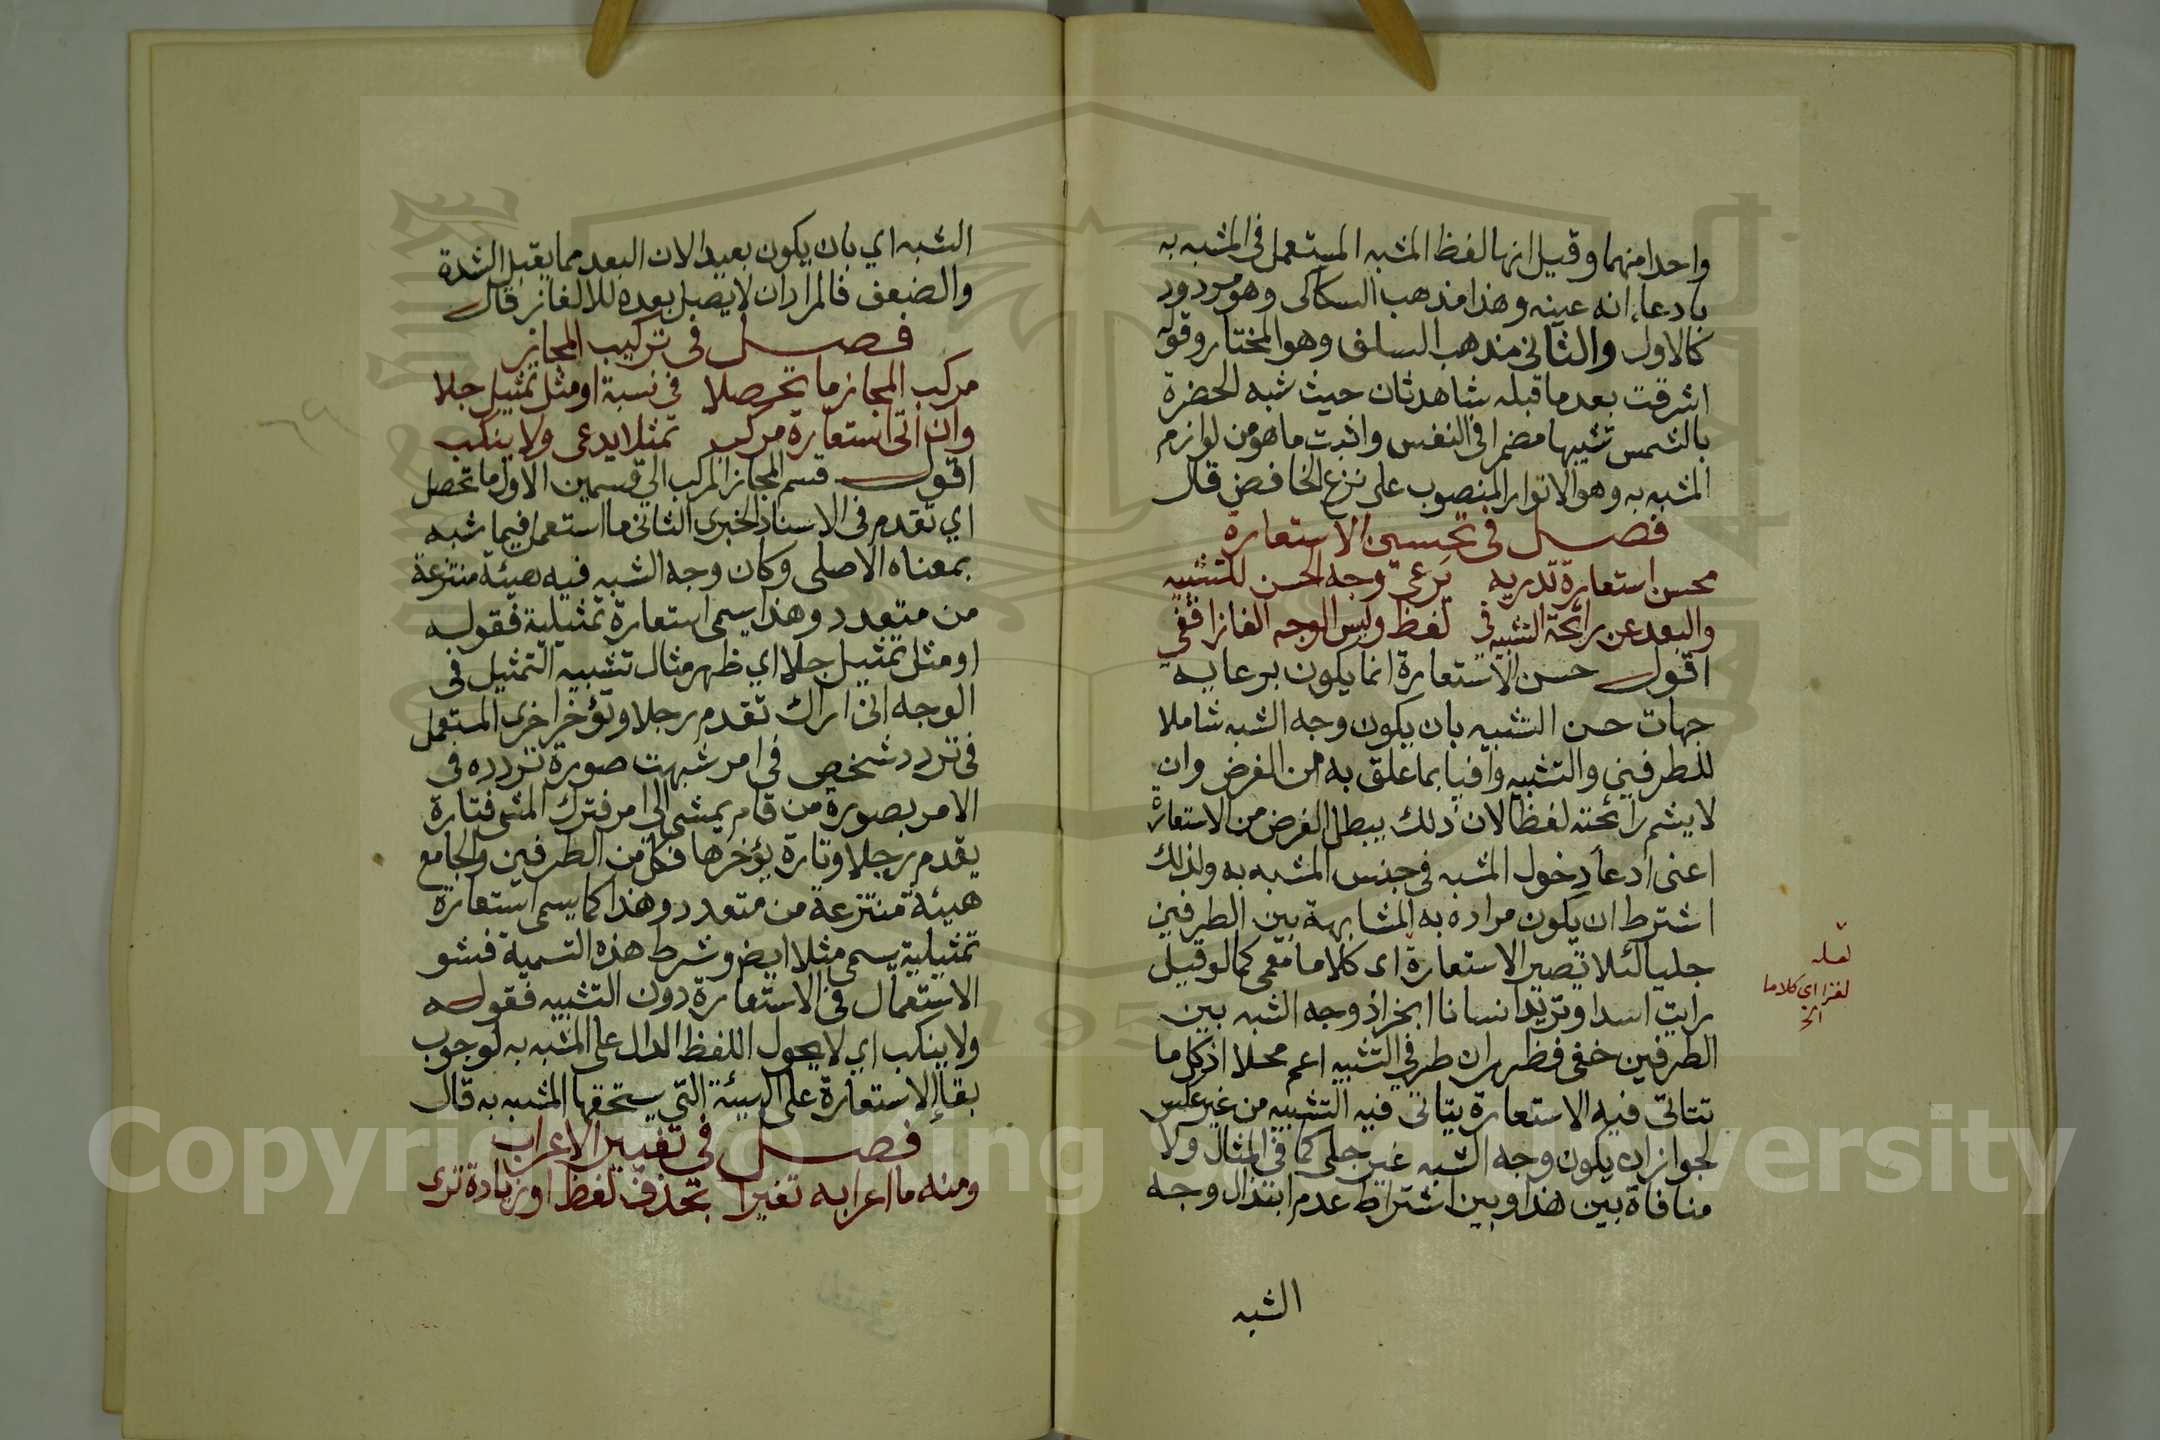 واحدا منهما وقيل انها لفظ المشبه المستعمل في المشبه به
بادعاء انه عينه وهذا مذهب السكاكى وهو مردود
كالاول والثانى مذهب السلف وهو المختار وقوله
اشرقت بعد ما قبله شاهد ثان حيث شبه الحضرة
بالشمس تشبيها مضمرا في النفس واثبت ما هو من لوازم
المشبه به وهو الانوار المنصوب على نزع الخافض قال
فصل في تحسين الاستعارة
محسن استعارة تدريه يرعى وجه الحسن للتشبيه
والبعد عن رائحة التشبيه في لفظ وليس الوجه الغازا قفي
اقول حسن الاستعارة انما يكون برعاية
جهات حسن التشبيه بان يكون وجه الشبه شاملا
للطرفين والتشبيه وافيا بما علق به من الغرض وان
لا يشم رائحته لفظا لان ذلك يبطل الغرض من الاستعارة
اعنى ادعا دخول المشبه في جنس المشبه به ولذلك
اشترط ان يكون مراده به المشابهة بين الطرفين
جليا لئلا تصير الاستعارة اى كلاما معمى كما لو قيل
رايت اسدا وتريد انسانا ابخر اذ وجه الشبه بين
الطرفين خفى فظهر ان طرفي التشبيه اعم محلا اذ كل ما
تتاتى فيه الاستعارة يتاتى فيه التشبيه من غير عكس
لجواز ان يكون وجه الشبه غير جلى كما في المثال ولا
منافاة بين هذا وبين اشتراط عدم ابتذال وجه
الشبه
لعله
لغزا اي كلاما
الخ
الشبه اي بان يكون بعيدا لان البعد مما يقبل الشدة
والضعف فالمراد ان لا يصل بعده للالغاز قال
فصل في تركيب المجاز
مركب المجاز ما تحصلا في نسبة او مثل تمثيل جلا
وان اتى استعارة مركب تمثلا يدعى ولا ينكب
اقول قسم المجاز المركب الى قسمين الاول ما تحصل
اي تقدم في الاسناد الخبرى الثانى ما استعمل فيما شبه
بمعناه الاصلى وكان وجه الشبه فيه هيئة منتزعة
من متعدد وهذا يسمى استعارة تمثيلية فقوله
او مثل تمثيل جلا اي ظهر مثال تشبيه التمثيل في
الوجه انى اراك تقدم رجلا وتؤخر اخرى المستعمل
في تردد شخص في امر شبهت صورة تردده في
الامر بصورة من قام يمشى الى امر فترك المشى فتارة
يقدم رجلا وتارة يؤخرها فكل من الطرفين والجامع
هيئة منتزعة من متعدد وهذا كما يسمى استعارة
تمثيلية يسمى مثلا ايض وشرط هذه التسمية فشو
الاستعمال في الاستعارة دون التشبيه فقوله
ولا ينكب اي لا يحول اللفظ الدال على المشبه به لوجوب
بقاء الاستعارة على الهيئة التي يستحقها المشبه به قال
فصل في تغيير الاعراب
ومنه ما اعرابه تغيرا بحذف لفظ او زيادة ترى
Copyright © King Saud University